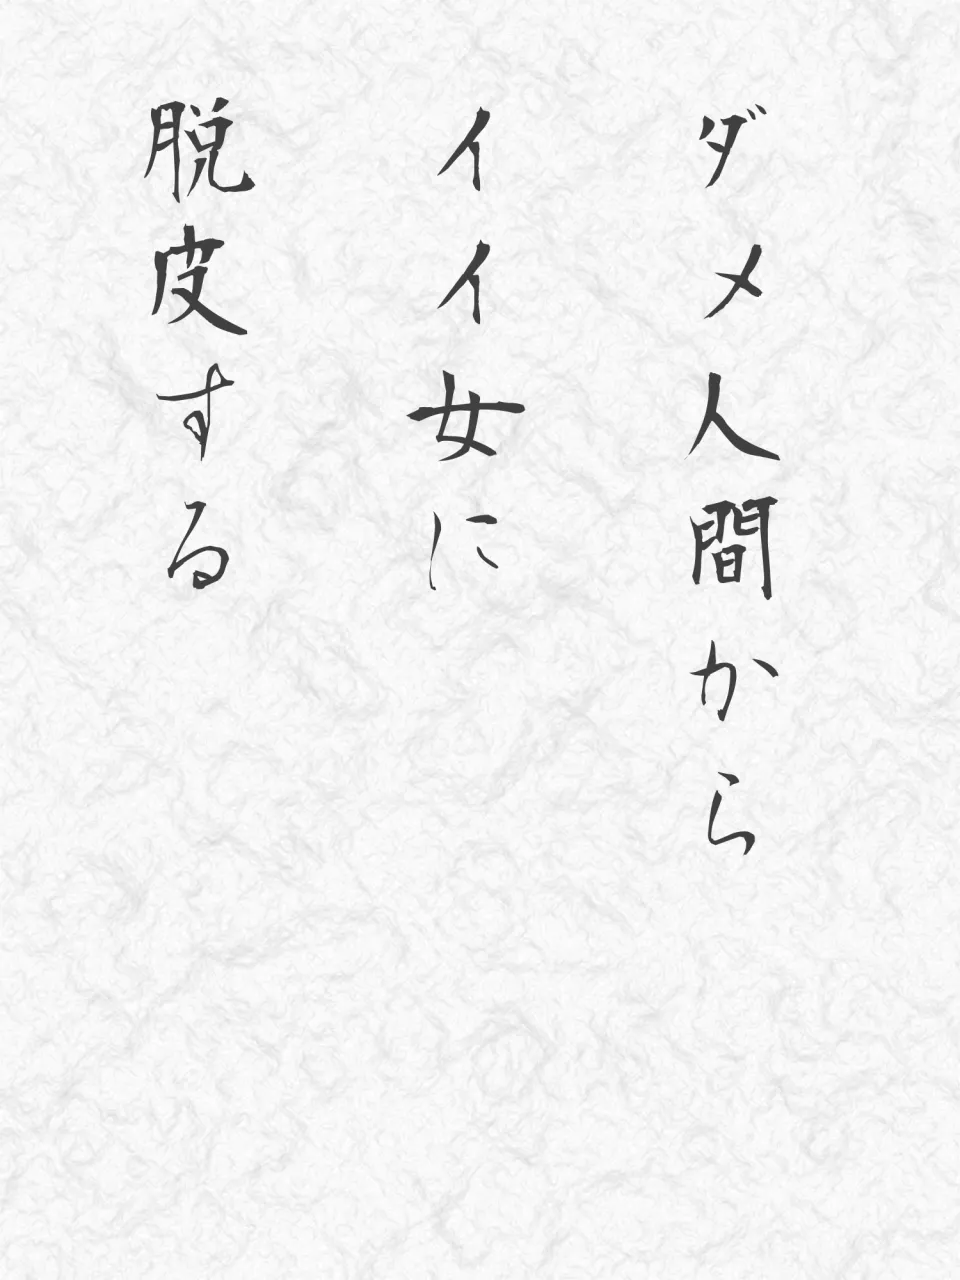 ダメ人間から
イイ女に
脱皮する